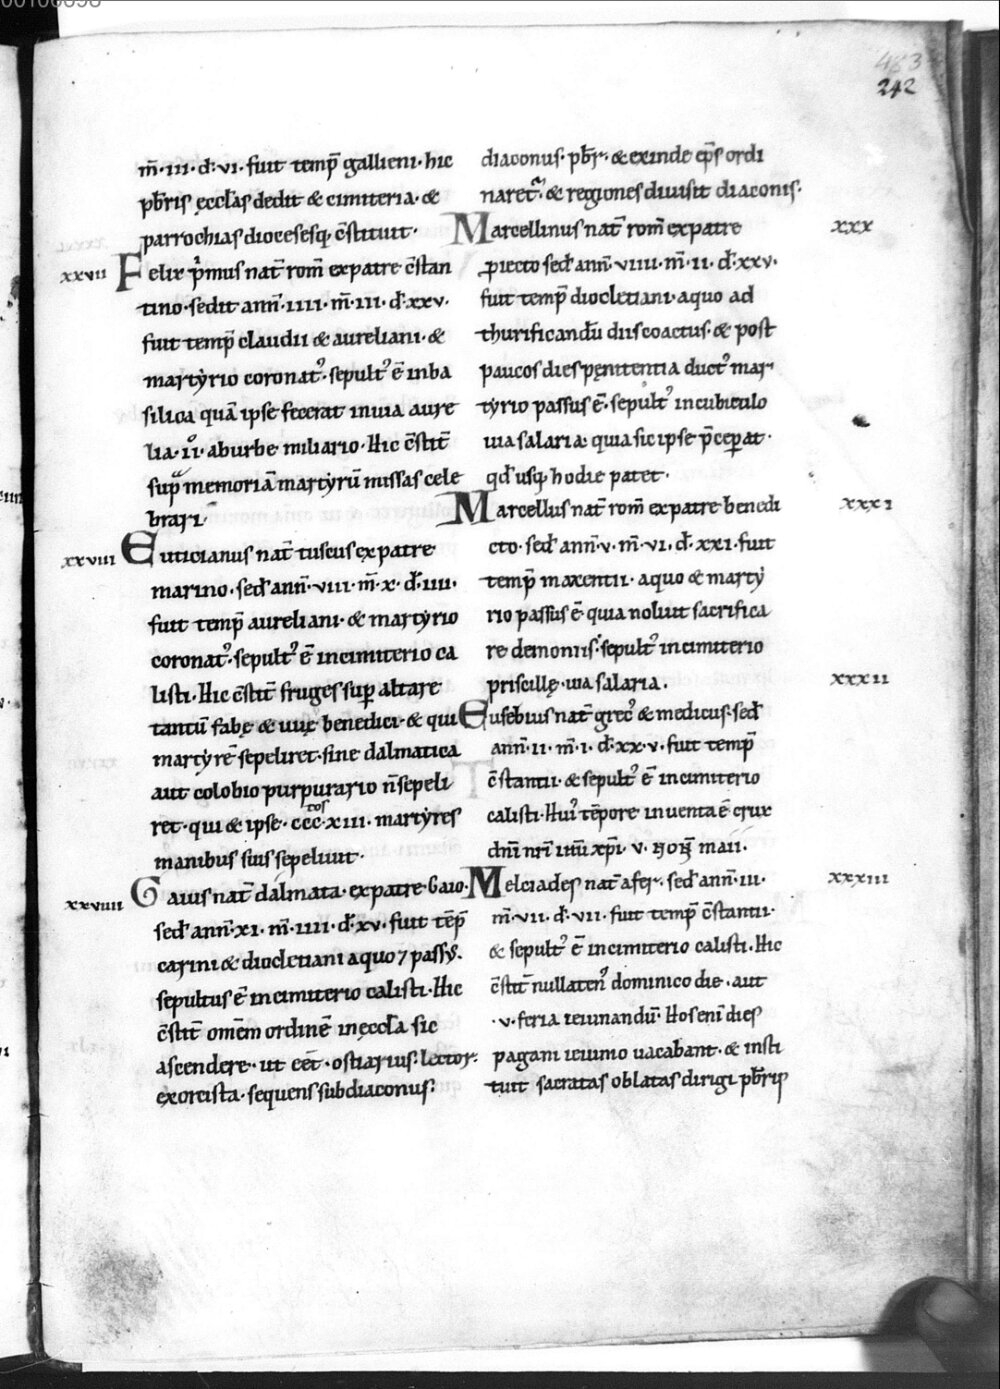 463
242
m̄·iii·d̄·vi·fuit temp̄ gallieni·hic
pb̄ris ęccl̄as dedit & cimiteria·&
parrochias dioceseſq; c̄stituit·
xxvii Felix p̄mus nat̄ rom̄ ex patre c̄stan
tino·sedit ann̄·iiii·m̄·iii·d̄·xxv·
fuit temp̄ claudii & aureliani·&
martẏrio coronatꝰ·sepultꝰ ē in ba
silica quā ipse fecerat in uia aure
lia·ii·ab urbe miliario·Hic c̄stit̄
sup̄ memoriā martẏrū missas cele
brari·
xxviii Euticianus nat̄ tuscus ex patre
marino·sed̄ ann̄·viii·m̄·x·d̄·iiii·
fuit temp̄ aureliani·& martẏrio
coronatꝰ·sepultꝰ ē in cimiterio ca
listi·Hic c̄stit̄ fruges sup̄ altare
tantū fabę & uuę benedici·& qui
martẏrē sepeliret·sine dalmatica
aut colobio purpurario n̄ sepeli
ret·qui & ipse·ccc·xiii·martẏres
tos
manibus suis sepeliuit·
xxviiii Gaius nat̄ dalmata·ex patre Gaio·
sed̄ ann̄·xi·m̄·iiii·d̄·xv·fuit tēp̄
carini & diocletiani a quo ⁊ passꝰ·
sepultus ē in cimiterio calisti·Hic
c̄stit̄ omēm ordinē in ęccl̄a sic
ascendere·ut eēt·ostiarius·lector·
exorcista·sequens subdiaconus·
diaconus·pb̄r·& exinde ep̄s ordi
naret᷑·& regiones diuisit diaconis·
Marcellinus nat̄ rom̄ ex patre xxx
ꝓiecto sed̄ ann̄·viiii·m̄·ii·d̄·xxv·
fuit temp̄ diocletiani·a quo ad
thurificandū diis coactus·& post
paucos dies pęnitentia ductꝰ mar
tẏrio passus ē·sepultꝰ in cubiculo
uia salaria·quia sic ipse p̄ceperat·
qd̄ usq; hodie patet·
Marcellus nat̄ rom̄ ex patre benedi xxxi
cto·sed̄ ann̄·v·m̄·vi·d̄·xxi·fuit
temp̄ maxentii·a quo & martẏ
rio passus ē·quia noluit sacrifica
re demoniis·sepultꝰ in cimiterio
priscillę·uia salaria· xxxii
Eusebius nat̄ grecꝰ & medicus·sed̄
ann̄·ii·m̄·i·d̄·xx·v·fuit temp̄
c̄stantii·& sepultꝰ ē in cimiterio
calisti·Huiꝰ tēpore inuenta ē crux
dn̄i nr̄i ihū xp̄i·v·non̄ maii·
Melciades nat̄ afer·sed̄ ann̄·iii· xxxiii
m̄·vii·d̄·vii·fuit temp̄ c̄stantii·
& sepultꝰ ē in cimiterio calisti·Hic
c̄stit̄ nullatenꝰ dominico die·aut
·v·feria ieiunandū·Hos enī dies
pagani ieiunio uacabant·& insti
tuit sacratas oblatas dirigi pb̄ris